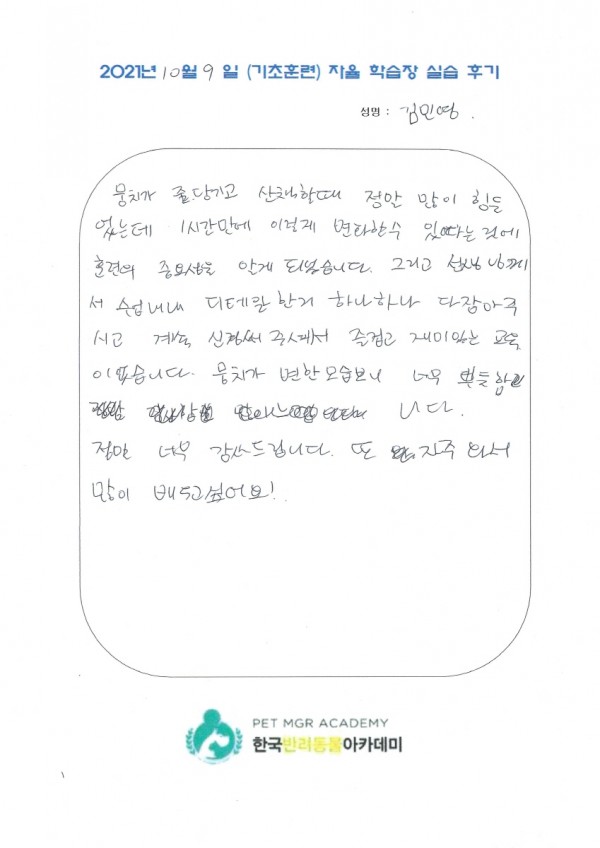 2021년 10월 9일 (기초훈련) 자율 학습장 실습 후기
성명 : 김민영.
뭉치가 줄당기고 산책할때 정말 많이 힘들
었는데 1시간만에 이렇게 변화할수 있다는 것에
훈련의 중요성을 알게 되었습니다. 그리고 선생님께
서 수업내내 디테일한거 하나하나 다잡아주
시고 계속 신경써주셔서 즐겁고 재미있는 교육
이었습니다. 뭉치가 변한모습보니 너무 뿌듯합
니다.
정말 너무 감사드립니다. 또 자주 와서
많이 배우고싶어요!
PET MGR ACADEMY
한국반려동물아카데미